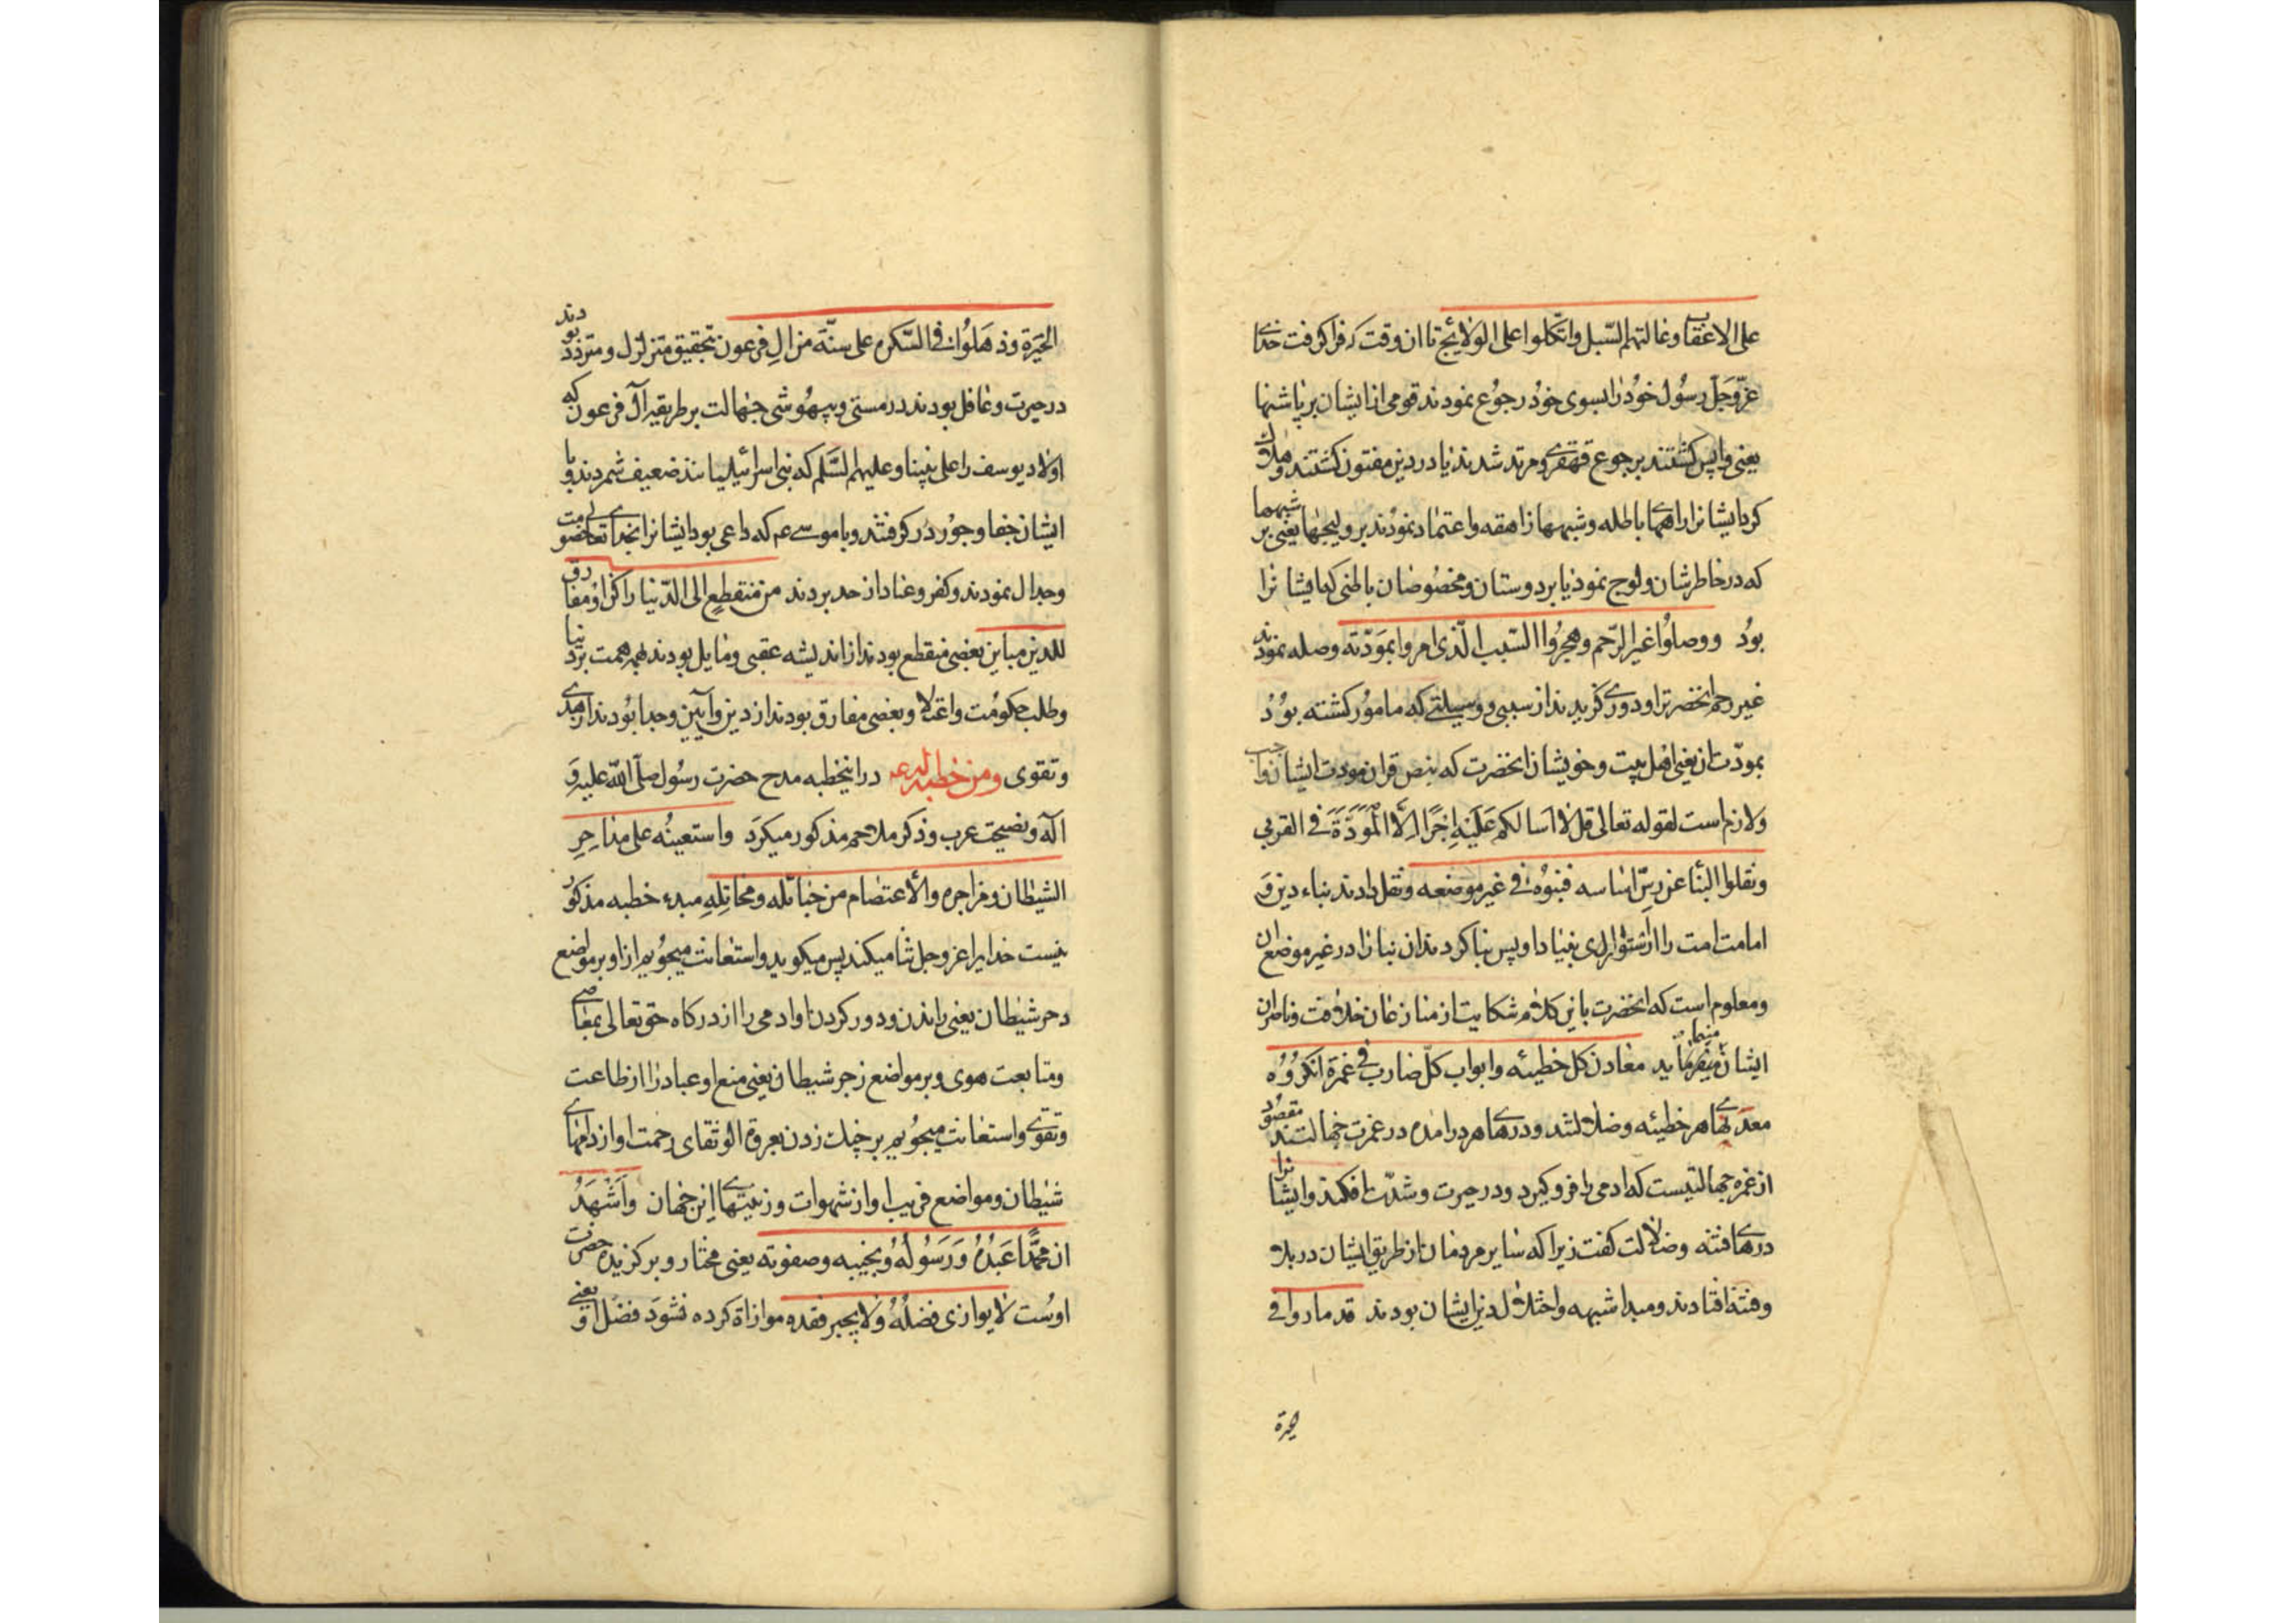 علی الاعقاب وغالتهم السّبل واتّکلوا علی الولائج تا ان وقت که فرا گرفت خدای
عزّوجلّ رسُول خوُد را بسوی خوُد رجوُع نمودند قومی از ایشان بر پاشنها
یعنی واپس کشتند برجوع قهقری ومرتد شدند یا در دین مفتون کشتند وهلاک
کرد ایشانرا راههای باطله وشبهها زاهقه واعتماد نموُدند بر ولیجها یعنی بر شبهها
که در خاطرشان ولوج نموذ یا بر دوستان ومخصُوصان باطنی که ایشانرا
بوُد ووصلوُا غیر الرّحم وهجرُوا السّبب الّذی امروا بمَودّته وصله نمودند
غیر رحم انحضرترا ودوری کزیدند از سببی ووسیلتی که مامور کشته بوُدُ
بمودّت ان یعنی اهل بیت وخویشان انحضرت که بنص قران مودت ایشان واجب
ولازم است لقوله تعالی قل لا اسالکم عَلَیْهِ اجْرًا اِلَّا الْمَوَدَّةَ فی القربی
ونقلوا البنا عن رصّ اساسه فبنوُه فی غیر موضعه ونقل دادند بناء دین وَ
امامت امت را از استواری بنیاد او پس بنا کردند ان بنا را در غیر موضع ان
ومعلوم است که انحضرت باین کلام شکایت از منازعان خلافت وناصران
ایشان میفرماید معادن کل خطیئه وابواب کلّ ضارب فی غمرة
معدنهای هر خطیئه وضلالتند ودرهای هر درامده در غمرت جهالتند مقصُود
از غمره جهالتیست که ادمی را فرو کیرد ودر حیرت وشدّت افکند وایشانرا
درهای فتنه وضلالت کفت زیرا که سایر مردمان از طریق ایشان در بلا
وفتنه افتادند ومبدا شبهه واختلال دین ایشان بودند قد ماروا فی
الحیرة
الحَیرَة وذهَلوُا فی السّکره علی سنّة من الِ فرعون بتحقیق متزلزل ومتردّد بودند
در حیرت وغافل بودند در مستی وبیهوُشی جهالت بر طریقه آل فرعون که
اولاد یوسف را علی نبینا وعلیهم السّلم که بنی اسرائیلیانند ضعیف شمردند وبا
ایشان جفا وجوُر در کرفتند وبا موسی عم که داعی بود ایشانرا بخدای تعالی خصومت
وجدال نمودند وکفر وعناد از حد بردند من منقطعٍ الی الدّنیا راکن او مفارق
للدین مباین بعضی منقطع بودند از اندیشه عقبی ومایل بودند همه همت بر دنیا
وطلب حکومُت واعتلا وبعضی مفارق بودند از دین وآیین وجدا بوُدند از هدی
وتقوی ومن خطبه له ع در اینخطبه مدح حضرت رسُول صلّی اللّه علیه وَ
آله ونصیحت عرب وذکر ملاحم مذکور میکرَد واستعینُه علی مداحِرِ
الشیطان ومزاجره والأعتصام من حبائله ومخاتِلِهِ مبدء خطبه مذکوُر
نیست خدایرا عز وجل ثنا میکند پس میکوید واستعانت میجوُییم از او بر مواضع
دحر شیطان یعنی راندن ودور کردن او ادمی را از درکاه حق تعالی بمعاصی
ومتابعت هوی وبر مواضع زجر شیطان یعنی منع او عباد را از طاعت
وتقوی واستعانت میجوُییم بر چنك زدن بعروة الوثقای رحمت او از دامهای
شیطان ومواضع فریب او از شهوات وزینتهای این جهان واَشْهَدُ
ان محمّدًا عَبْدُهُ وَرَسُولُهُ ونجیبه وصفوته یعنی مختار وبرکزیده حضرت
اوسُت لا یوازی فضلُهُ ولا یجبر فقده موازاة کرده نشوَد فضل او یعنی